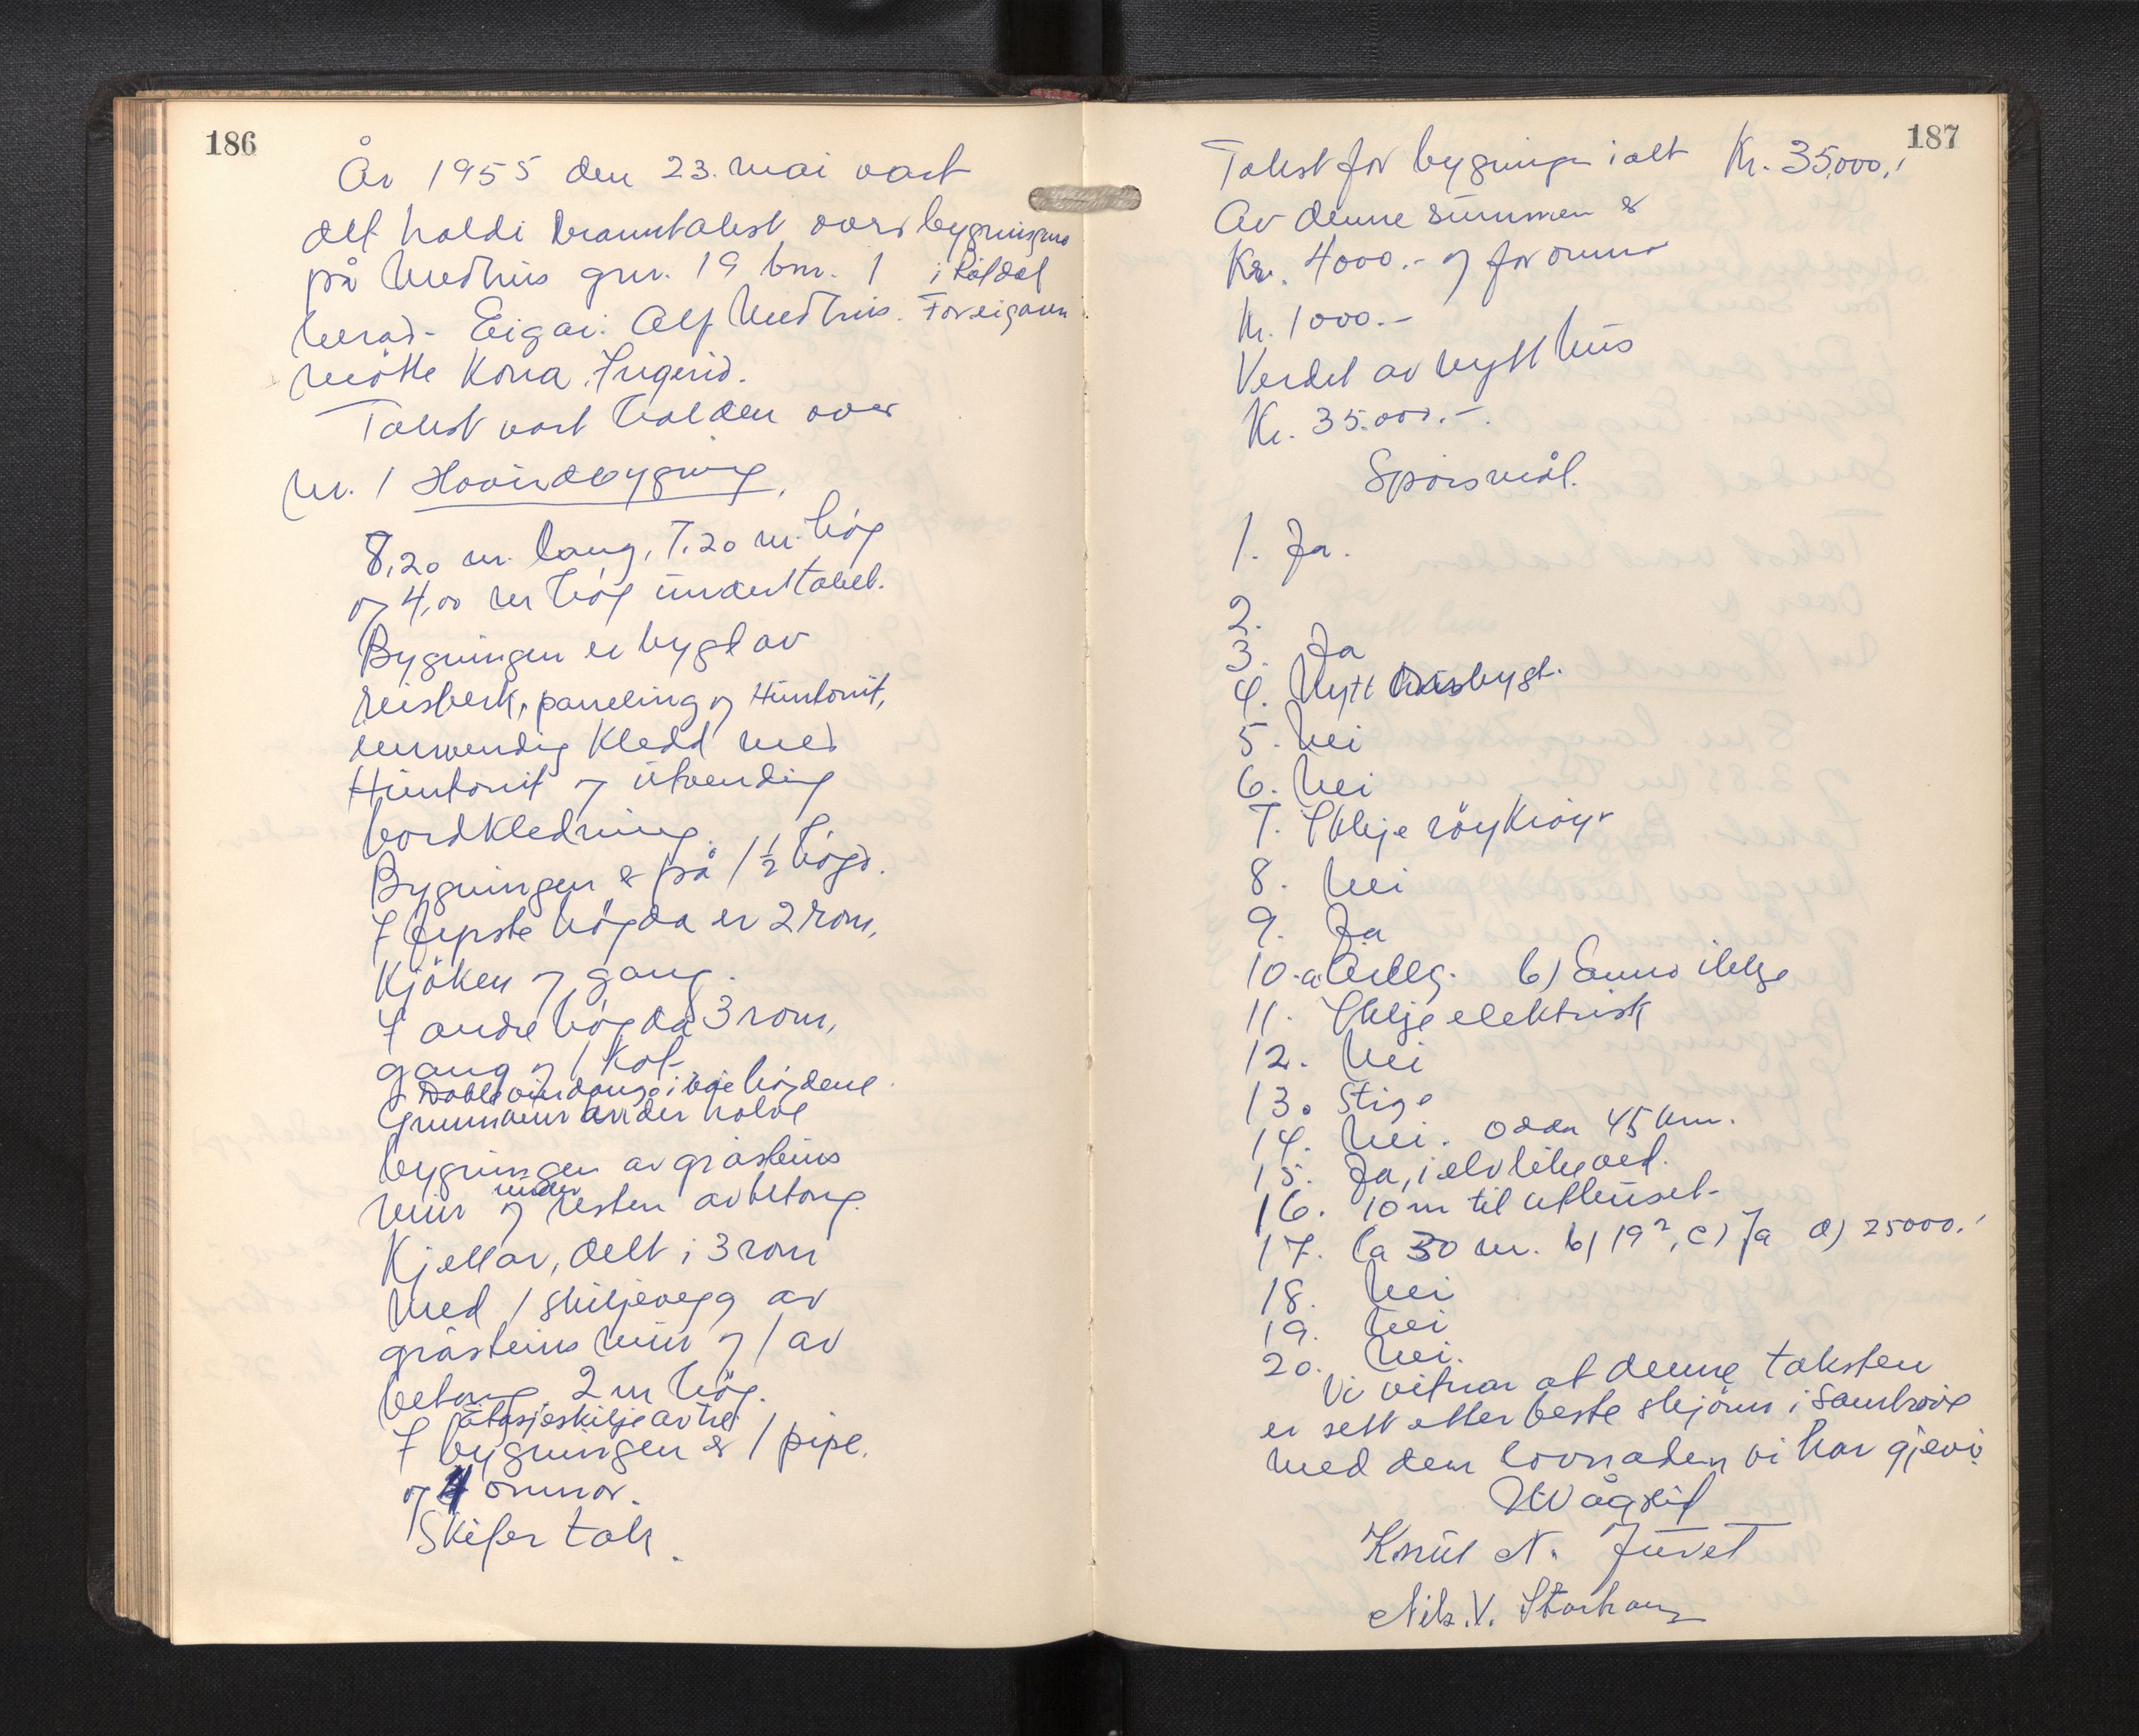 186
År 1955 den 23. mai vart
det haldi branntakst over bygningane
på Medhus gnr. 19 bnr. 1 i Röldal
herad. Eigar: Alf Medhus. For eigaren
møtte Kona, Ingerid.
Takst vart halden over
Nr. 1 Hovudbygning,
8,20 m. lang, 7,20 m. høg
og 4,00 m høg under taket.
Bygningen er bygt av
reisverk, paneling og Huntonit,
innvendig kledd med
Huntonit og utvendig
bordkledning.
Bygningen er på 1½ høgd.
I fyrste høgda er 2 rom,
Kjøken og gang.
I andre høgda 3 rom,
gang og 1 kot.
Doble vindauge i høgdene
Grunnmur under halve
bygningen av gråsteins
mur og under resten av betong.
Kjellar, delt i 3 rom
med 1 skiljevegg av
gråsteins mur og 1 av
betong. 2 m høg.
Etasjeskilje av tre
I bygningen er 1 pipe.
og 4 omnar.
Skifer tak.
187
Takst for bygningen i alt Kr. 35.000,-
Av denne summen er
Kr. 4000.- og for omnar
Kr. 1000.-
Verdet av nytt hus
Kr. 35.000.-
Spørsmål.
1. Ja.
2.
3. Ja
4. Nytt husbygt.
5. Nei
6. Nei
7. Ikkje røykrøyr
8. Nei
9. Ja
10. a b) Anna ikkje
11. Ikkje elektrisk
12. Nei
13. Stige
14. Nei. Odda 45 km.
15. Ja, i elv like ved.
16. 10 m til uthuset.
17. Ca 30 m. b) 19², c) Ja d) 25000.-
18. Nei
19. Nei
20. Nei.
Vi vitnar at denne taksten
er sett etter beste skjønn i samhøve
med den lovnaden vi har gjevi.
Knut N. Juvet
Nils. V.